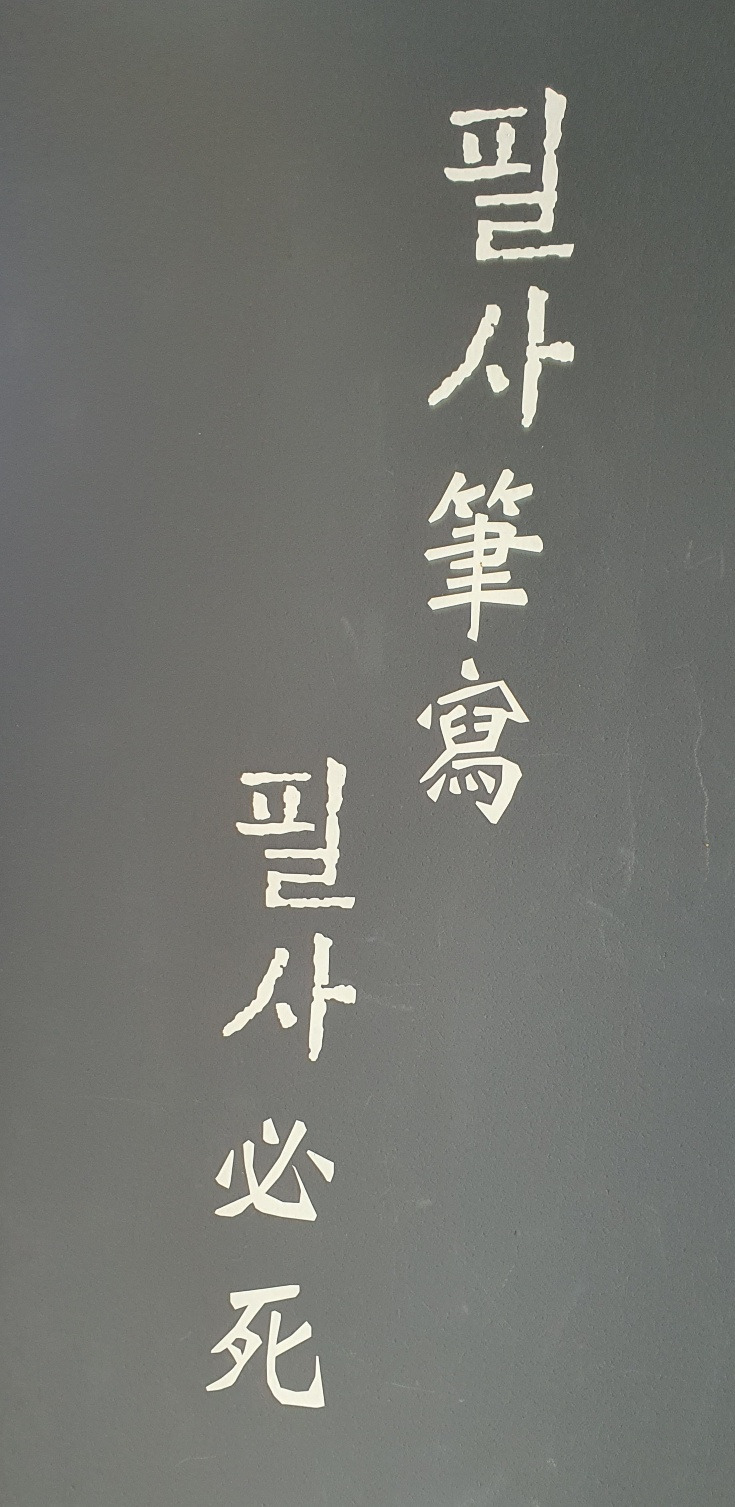 필사筆寫
필사必死